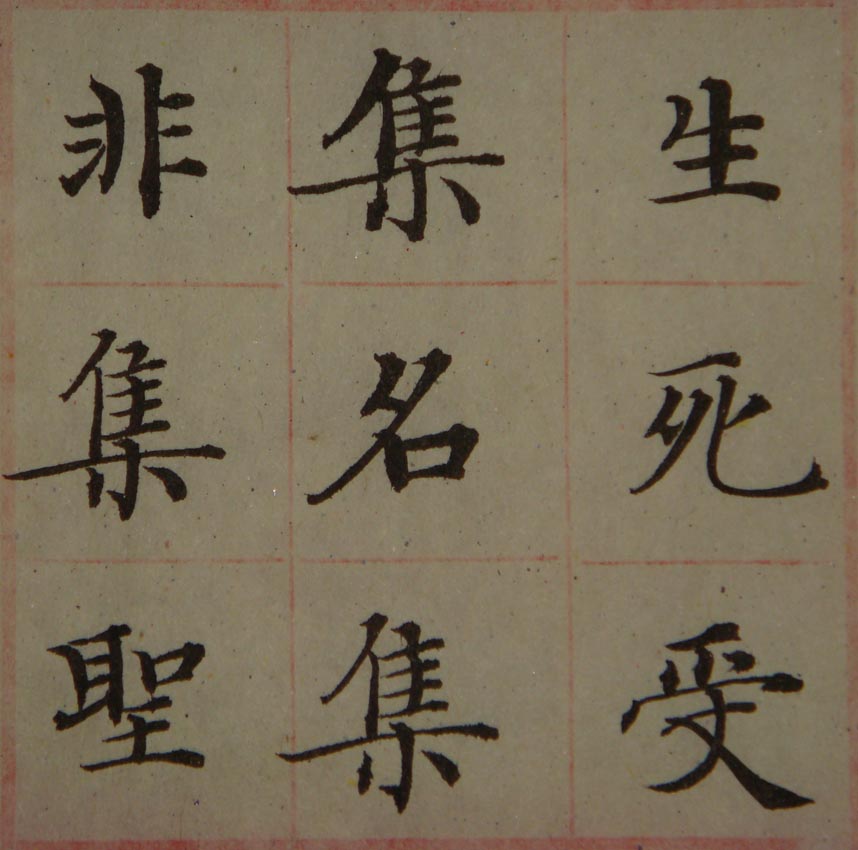 生死受
集名集
非集聖